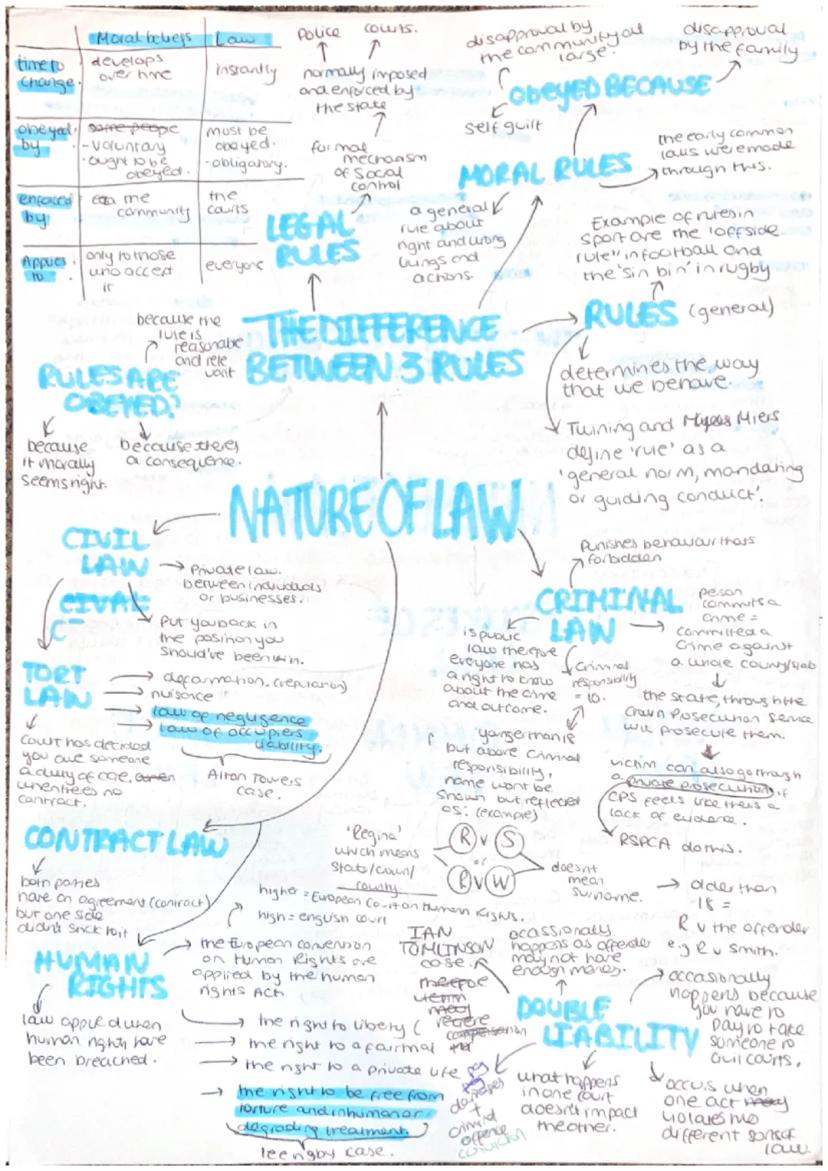 Moral beliefs Law
time to change. develops over time instantly
obeyed by some people - voluntary - ought to be obeyed. must be obeyed. - obligatory.
enforced by: the community the courts
Applies to only to those who accept it everyone
Police courts.
normally imposed
and enforced by
the state
formal
mechanism
of social
control
LEGAL
RULES
disapproval by
the community at
large.
disapproval
by the family
OBEYED BECAUSE
self guilt
MORAL RULES
the early common
laws were made
through this.
a general
rule about
right and wrong
livings and
actions.
Example of rules in
sport are the "offside
rule" in football and
the 'sin bin' in rugby
RULES (general)
determines the way
that we behave.
Twining and Miers
define 'rule' as a
'general norm, mandating
or guiding conduct'.
THE DIFFERENCE
BETWEEN 3 RULES
because the
rule is
reasonable
and rele
vant
RULES ARE
OBEYED?
because
it morally
seems right.
because theres
a consequence.
NATURE OF LAW
CIVIL
LAW
Private law.
between individuals
or businesses.
CIVAL
C
Put you back in
the position you
should've been in.
TORT
LAW
deformation. (reputation)
nuisance
law of negligence
law of occupiers
liability.
Alton Towers
case.
court has decided
you owe someone
a duty of care,
when theres no
contract.
CONTRACT LAW
both parties
have an agreement (contract)
but one side
didn't stick to it
HUMAN
RIGHTS
law applied when
human rights have
been breached.
higher = European Court on Human Rights.
high = english court
the European convention
on Human Rights are
applied by the human
rights Act.
the right to liberty (
the right to a fair trial
the right to a private life
the right to be free from
torture and inhuman or
degrading treatment
lee rigby case.
CRIMINAL
LAW
Punishes behaviour thats
forbidden
person
commits a
crime =
committed a
crime against
a whole country/state
the state, through the
Crown Prosecution Service
will prosecute them.
victim can also go through
a private prosecution if
CPS feels like theres a
lack of evidence.
RSPCA do this.
is public
law therefore
everyone has
a right to know
about the crime
and outcome.
criminal
responsibility
= 10.
younger than 18
but above criminal
responsibility,
name wont be
shown but reflected
as: (example)
R v S
or
R v W
'Regina'
which means
State/Court/
county
doesnt
mean
surname.
older than
18 =
R v the offender
e.g R v Smith.
DOUBLE
LIABILITY
IAN
TOMLINSON
case.
ocassionally
happens as offender
may not have
enough money.
occasionally
happens because
you have to
pay to take
someone to
civil courts.
occurs when
one act
violates two
different sorts of
law.
what happens
in one court
doesn't impact
the other.
damages
+
criminal
offence
conviction